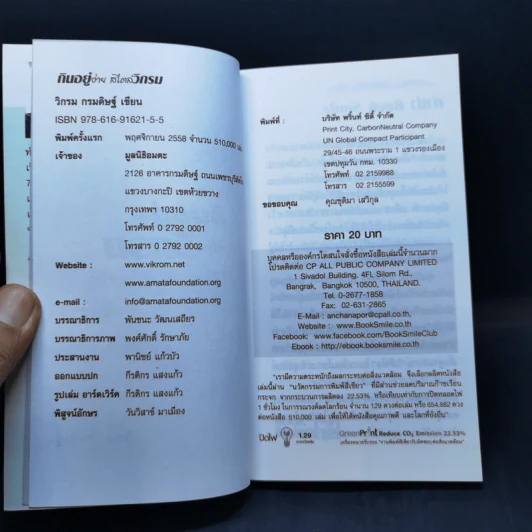 กินอยู่ง่าย สไตล์วิกรม
วิกรม กรมดิษฐ์ เขียน
ISBN 978-616-91621-5-5
พิมพ์ครั้งแรก พฤศจิกายน 2558 จำนวน 510,000 เล่ม
เจ้าของ มูลนิธิอมตะ
2126 อาคารกรมดิษฐ์ ถนนเพชรบุรีตัดใหม่
แขวงบางกะปิ เขตห้วยขวาง
กรุงเทพฯ 10310
โทรศัพท์ 0 2792 0001
โทรสาร 0 2792 0002
Website : www.vikrom.net
www.amatafoundation.org
e-mail : info@amatafoundation.org
บรรณาธิการ พันชนะ วัฒนเสถียร
บรรณาธิการภาพ พงศ์ศักดิ์ รักษาภัย
ประสานงาน พานิชย์ แก้วบัว
ออกแบบปก กีรติกร แสงแก้ว
รูปเล่ม อาร์ตเวิร์ค กีรติกร แสงแก้ว
พิสูจน์อักษร วันวิสาข์ มาเมือง
พิมพ์ที่ : บริษัท พริ้นท์ ซิตี้ จำกัด
Print City, CarbonNeutral Company
UN Global Compact Participant
29/45-46 ถนนพระราม 1 แขวงรองเมือง
เขตปทุมวัน กทม. 10330
โทรศัพท์ 02 2159988
โทรสาร 02 2155599
ขอขอบคุณ คุณชุติมา เสวิกุล
ราคา 20 บาท
บุคคลหรือองค์กรใดสนใจสั่งซื้อหนังสือเล่มนี้จำนวนมาก
โปรดติดต่อ CP ALL PUBLIC COMPANY LIMITED
1 Sivadol Building, 4Fl, Silom Rd.,
Bangrak, Bangkok 10500, THAILAND.
Tel. 0-2677-1858
Fax: 02-631-2865
E-Mail : anchanapor@cpall.co.th
Website : www.BookSmile.co.th
Facebook: www.facebook.com/BookSmileClub
Ebook : http://ebook.booksmile.co.th
"เรามีความตระหนักถึงผลกระทบต่อสิ่งแวดล้อม จึงเลือกผลิตหนังสือ
เล่มนี้ผ่าน "นวัตกรรมการพิมพ์สีเขียว" ที่มีส่วนช่วยลดปริมาณก๊าซเรือน
กระจก จากกระบวนการผลิตลง 22.53% หรือเทียบเท่ากับการปิดหลอดไฟ
1 ชั่วโมง ในการรณรงค์ลดโลกร้อน จำนวน 1.29 ดวงต่อเล่ม หรือ 654,882 ดวง
ต่อหนังสือ 510,000 เล่ม เพื่อให้ได้หนังสือคุณภาพดี และโลกที่ยั่งยืน"
ปิดไฟ 1.29 GreenPrint Reduce CO2 Emission 22.53%